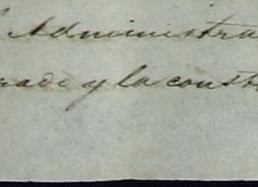 Administra
rado y la const